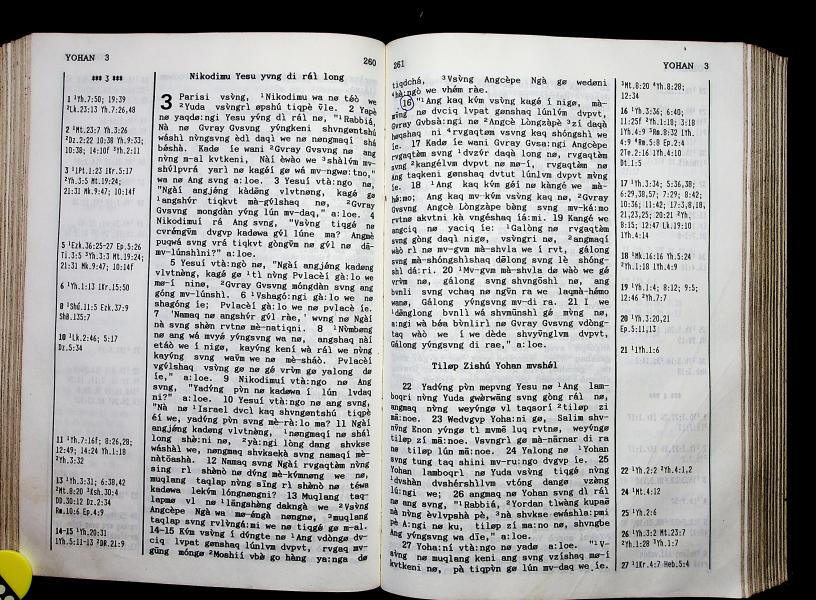 YOHAN 3
260
*** 3 ***
1 ¹Yh.7:50; 19:39
²Lk.23:13 Yh.7:26,48
2 ¹Mt.23:7 Yh.3:26
²Dz.2:22 10:38 Yh.9:33;
10:38; 14:10f ³Yh.2:11
3 ¹1Pt.1:23 1Kr.5:17
²Yh.3:5 Mt.19:24;
21:31 Mk.9:47; 10:14f
5 ¹Ezk.36:25-27 Ep.5:26
Ti.3:5 ²Yh.3:3 Mt.19:24;
21:31 Mk.9:47; 10:14f
6 ¹Yh.1:13 1Kr.15:50
8 ¹Shø.11:5 Ezk.37:9
Shø.135:7
10 ¹Lk.2:46; 5:17
Dz.5:34
11 ¹Yh.7:16f; 8:26,28;
12:49; 14:24 Yh.1:18
²Yh.3:32
13 ¹Yh.3:31; 6:38,42
²Mt.8:20 ³Ksh.30:4
DD.30:12 Dz.2:34
Rm.10:6 Ep.4:9
14-15 ¹Yh.20:31
1Yh.5:11-13 ²DR.21:9
Nikodimu Yesu yvng di rál long
3 Parisi vsv̀ng, ¹Nikodimu wa nø tø̀ò we
²Yuda vsv̀ngrì øpshú tiqpè v̄le. 2 Yapè
nø yaqdø:ngì Yesu yv́ng dì rál nø, "¹Rabbiá,
Nà nø Gvray Gvsvng yíngkeni shvngøntshú
wáshì nv̀ngsvng èdì daqì we nø nøngmaqí shá
bêshà. Kadø íe wani ²Gvray Gvsvng nø ang
nv̀ng m-al kvtkeni, Nàí èwào we ³shàlv́m mv-
shúlpvrá yarì nø kagéí gø wá mv-ngwø:tno,"
wa nø Ang svng a:loe. 3 Yesuí vtà:ngo nø,
"Ngàí angjéng kàdø̀ng vlvtnèng, kagé gø
¹angshv́r tiqkvt mà-gv́lshaq nø, ²Gvray
Gvsvng mongdàn yv̀ng lún mv-daq," a:loe. 4
Nikodimuí rá Ang svng, "Vsv̀ng tiqgé nø
cvréngv̄m dvgvp kadøwa gv́l lúne ma? Angmè
puqwá svng vrá tiqkvt gòngv̄m nø gv́l nø dā-
mv-lúnshìni?" a:loe.
5 Yesuí vtà:ngo nø, "Ngàí angjéng kadø̀ng
vlvtnèng, kagé gø ¹tì nv̀ng Pvlacèí gà:lo we
mø-í ninø, ²Gvray Gvsvng móngdàn svng ang
góng mv-lúnshì. 6 ¹Vshagó:ngì gà:lo we nø
shagóng íe; Pvlacèí gà:lo we nø pvlacè íe.
7 'Namaq nø angshv́r gv́l ràe,' wvng nø Ngàí
nà svng shv̀n rvtnø mè-natìqni. 8 ¹Nv̀mbøng
nø ang wá mvyǿ yíngsvng wa nø, angshaq nàí
etáò we í nigø, kayv́ng kení wà rál we nv̀ng
kayv́ng svng wav̄m we nø mè-sháò. Pvlacèí
vgv́lshaq vsv̀ng gø nø gé vrv̀m gø yalong dø
íe," a:loe. 9 Nikodimuí vtà:ngo nø Ang
svng, "Yadv́ng pv̀n nø kadøwa í lún lvdaq
ni?" a:loe. 10 Yesuí vtà:ngo nø ang svng,
"Nà nø ¹Israel dvcl̀ kaq shvngøntshú tiqpè
éí we, yadv́ng pv̀n svng mè-rà:lo ma? 11 Ngàí
angjéng kadø̀ng vlvtnèng, ¹nøngmaqí nø shál
long shø̀:ni nø, ²yà:ngì long dang shvkse
wáshàì we, nøngmaq shvkseká svng namaqí mè-
nàtòáshà. 12 Namaq svng Ngàí rvgaqtàm nv̀ng
sìng rì shø̀nò nø dv́ng mè-kv́mnøng we nø,
muqlang taqlap nv̀ng sīng rì shø̀nò nø téwá
kadøwa lekv́m lóngnøngni? 13 Muqlang taq-
lapmø vl nø ¹làngshàng dakngà we ²Vsv̀ng
Angcèpe Ngà wa mø-éngà nøngnø, ³muqlang
taqlap svng rvlv̀ngá:mì we nø tiqgé gø m-al.
14-15 Kv́m vsv̀ng í dv́ngte nø ¹Ang vdòngø dv-
cìq lvpat gønshaq lúnlv́m dvpvt, rvgaq mv-
gūng móngø ²Moshìí vbø̀ go hàng ya:nga dø
261
YOHAN 3
tiqdchá, ³Vsv̀ng Angcèpe Ngà gø wedøni
⁴hà:ngò we vhém ràe.
16 "¹Ang kaq kv́m vsv̀ng kagé í nigø, mà-
mīng nø dvciq lvpat gønshaq lúnlv́m dvpvt,
Gvray Gvbsà:ngì nø ²Angcè Lòngzàpe ³zí daqà
høqshaq ni ⁴rvgaqtøm vsvng kaq shóngshì we
íe. 17 Kadø íe wani Gvray Gvsa:ngì Angcèpe
rvgaqtøm svng ¹dvzv́r daqà long nø, rvgaqtøm
svng ²kangélv́m dvpvt nø mø-í, rvgaqtøm nø
Ang taqkeni gønshaq dvtut lúnlv́m dvpvt mv̀ng
íe. 18 ¹Ang kaq kv́m géí nø kàngé we mà-
hà:mo; Ang kaq mv-kv́m vsv̀ng kaq nø, ²Gvray
Gvsvng Angcè Lòngzàpe bàng svng mv-kà:mo
rvtnø akvtnì ká vngéshaq íá:mì. 19 Kangé we
angcìq nø yacìq íe: ¹Galòng nø rvgaqtøm
svng góng daqì nigø, vsv̀ngrì nø, ²angmaqí
wàò rì nø mv-gvm mà-shvla we í rvt, gálòng
svng mà-shóngshìshaq dēlòng svng lè shóng-
shì dá:ri. 20 ¹Mv-gvm mà-shvla dø wàò we gé
vrv̀m nø, gálòng svng shvngōshì nø, ang
bvnlì svng vchaq nø ngv̄n ra we laqmà-hémo
wanø, Gálòng yíngsvng mv-di ra. 21 Í we
¹dènglong bvnlì wá shvmūnshì gé mv̀ng nø,
a:ngì wà béá bv̀nlìrì nø Gvray Gvsvng vdòng-
taq wàò we í we dède shvyv̄nglv́m dvpvt,
Gálòng yíngsvng di rae," a:loe.
Tiløp Zìshú Yohàn mvshál
22 Yadv́ng pv̀n mepvng Yesu nø ¹Ang lam-
boqrì nv̀ng Yuda gwèrwāng svng gòng rál nø,
angmaq nv̀ng weyv́ngø vl taqsorí ²tiløp zí
mā:noe. 23 Wedvgvp Yoha:ní gø, Salim shv-
nv̀ng Enon yv́ngø tì mvmē luq rvtnø, weyv́ngø
tiløp zí mā:noe. Vsvngrì gø mà-nārnar dì ra
nø tiløp lún mā:noe. 24 Yalong nø ¹Yohan
svng tung taq shìnì mv-ru:ngo dvgvp íe. 25
Yohan lamboqrì nø Yuda vsv̀ng tiqgé nv̀ng
¹dvshàn dvshérshìlv́m vtóng dangø vzèng
lú:ngì we; 26 angmaq nø Yohan svng dì rál
nø ang svng, "¹Rabbiá, ²Yordan tlwàng kupaà
nà nv̀ng èvlvpshà pè, ³nà shvkse ewáshìà:pmì
pè À:ngì nø ku, tiløp zí ma:no nø, shvngbe
Ang yíngsvng wa díe," a:loe.
27 Yoha:ní vtà:ngo nø yadø a:loe. "¹V-
sv̀ng nø muqlang kení ang svng vzíshaq mø-í
kvtkeni nø, pà tiqpv̀n gø lún mv-daq we íe.
³Mt.8:20 ⁴Yh.8:28;
12:34
16 ¹Yh.3:36; 6:40;
11:25f ²Yh.1:18; 3:18
1Yh.4:9 ³Rm.8:32 1Yh.
4:9 ⁴Rm.5:8 Ep.2:4
2Te.2:16 1Yh.4:10
Dt.1:5
17 ¹Yh.3:34; 5:36,38;
6:29,38,57; 7:29; 8:42;
10:36; 11:42; 17:3,8,18,
21,23,25; 20:21 ²Yh.
8:15; 12:47 Lk.19:10
1Yh.4:14
18 ¹Mk.16:16 Yh.5:24
²Yh.1:18 1Yh.4:9
19 ¹Yh.1:4; 8:12; 9:5;
12:46 ²Yh.7:7
20 ¹Yh.3:20,21
Ep.5:11,13
21 ¹1Yh.1:6
22 ¹Yh.2:2 ²Yh.4:1,2
24 ¹Mt.4:12
25 ¹Yh.2:6
26 ¹Yh.3:2 Mt.23:7
²Yh.1:28 ³Yh.1:7
27 ¹1Kr.4:7 Heb.5:4